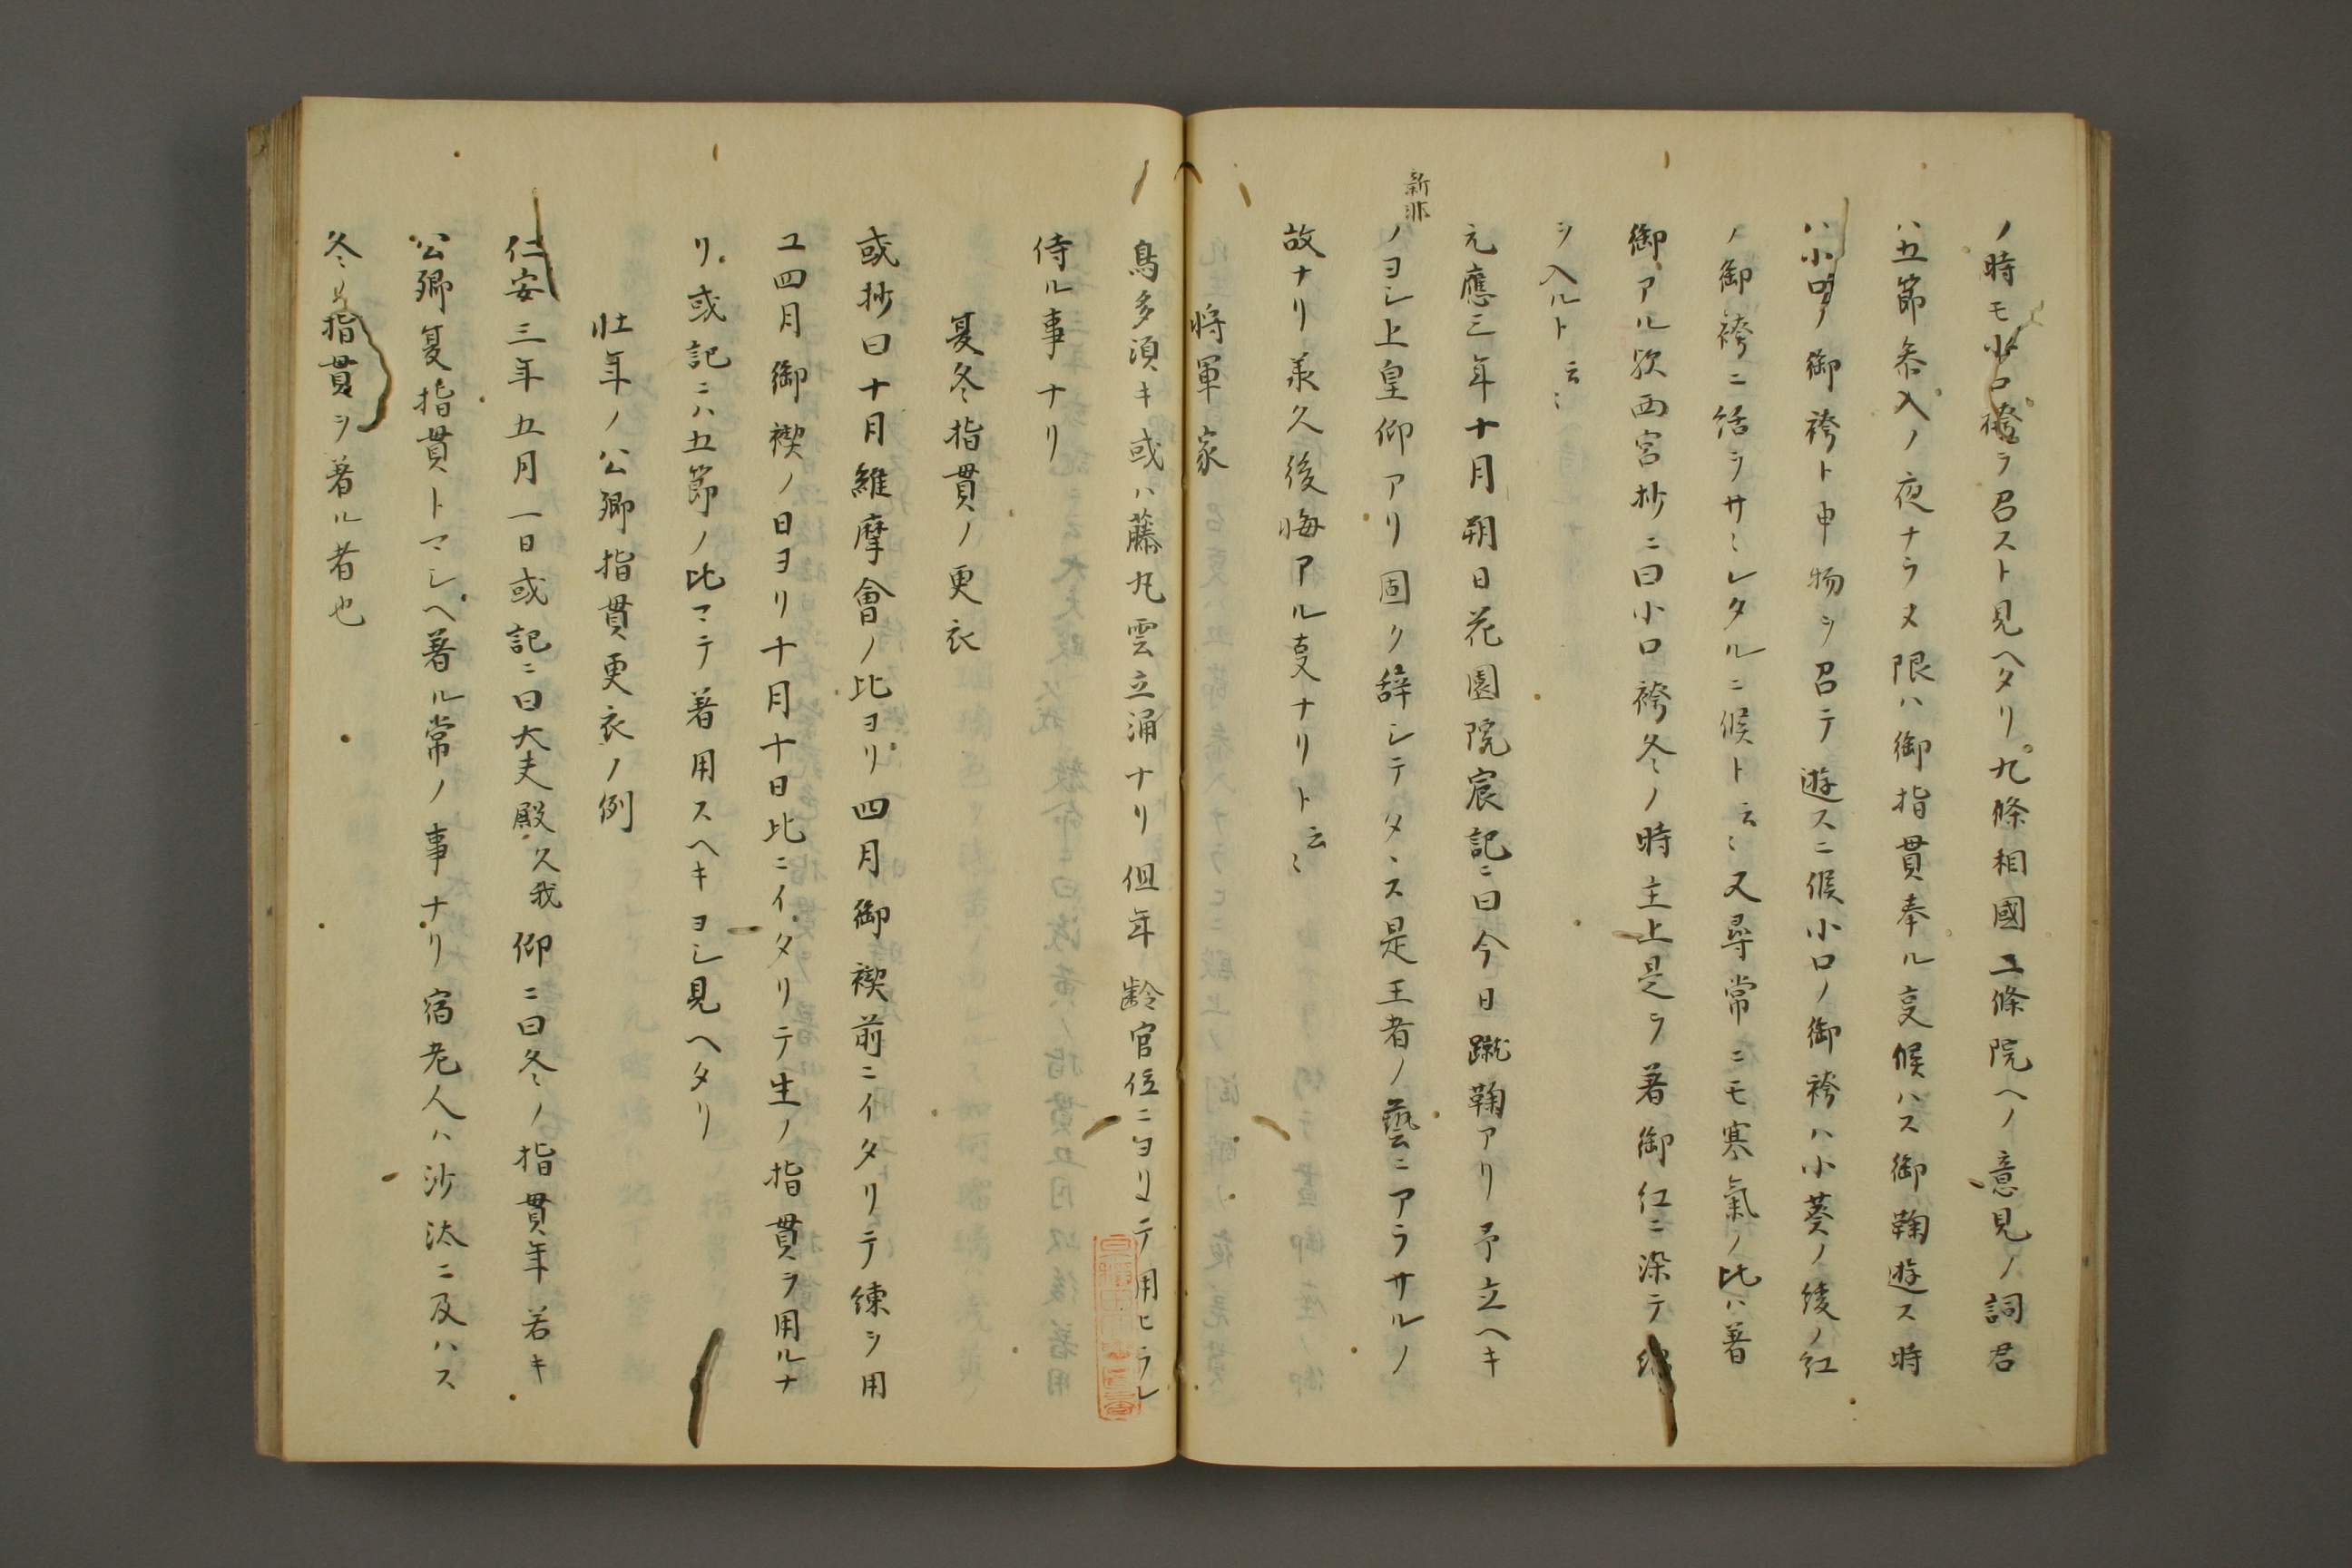 ノ時モ小口袴ヲ召スト見ヘタリ九條相國二條院ヘノ意見ノ詞君
ハ五節参入ノ夜ナラヌ限ハ御指貫奉ル叓候ハス御鞠遊ス時
ハ小口ノ御袴ト申物ヲ召テ遊スニ候小口ノ御袴ハ小葵ノ綾ノ紅
ノ御袴ニ括ヲサヽレタルニ候ト云〻又尋常ニモ寒氣ノ比ハ著
御アル歟西宮抄ニ曰小口袴冬ノ時主上是ヲ著御紅ニ染テ綿
ヲ入ルト云〻
元應三年十月朔日花園院宸記ニ曰今日蹴鞠アリ予立ヘキ
新非
ノヨシ上皇仰アリ固ク辞シテタヽス是王者ノ藝ニアラサルノ
故ナリ承久後悔アル叓ナリト云〻
将軍家
鳥多須キ或ハ藤丸雲立涌ナリ但年齢官位ニヨリテ用ヒラレ
侍ル事ナリ
夏冬指貫ノ更衣
或抄曰十月維摩會ノ比ヨリ四月御禊前ニイタリテ練ヲ用
ユ四月御禊ノ日ヨリ十月十日比ニイタリテ生ノ指貫ヲ用ルナ
リ或記ニハ五節ノ比マテ著用スヘキヨシ見ヘタリ
壮年ノ公卿指貫更衣ノ例
仁安三年五月一日或記ニ曰大夫殿久我仰ニ曰冬ノ指貫年若キ
公卿夏指貫トマシヘ著ル常ノ事ナリ宿老人ハ沙汰ニ及ハス
冬指貫ヲ著ル者也